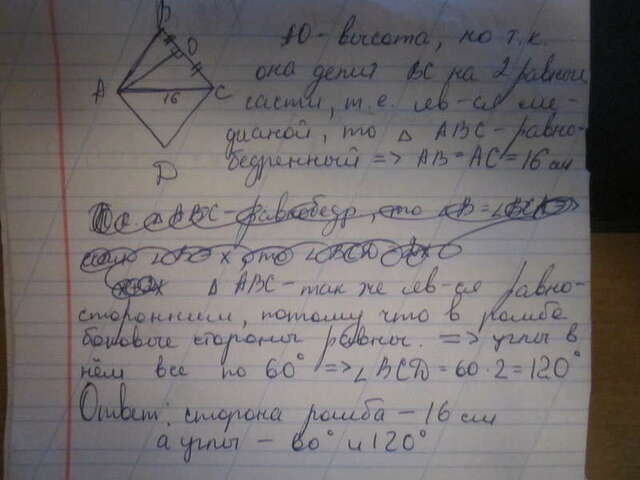 B
O
A
16
C
D
AO - высота, но т.к.
она делит BC на 2 равные
части, т.е. яв-ся ме-
дианой, то △ ABC - равно-
бедренный => AB = AC = 16 см
△ ABC - так же яв-ся равно-
сторонним, потому что в ромбе
боковые стороны равны. => углы в
нём все по 60° => ∠BCD = 60·2 = 120°
Ответ: сторона ромба - 16 см
а углы - 60° и 120°